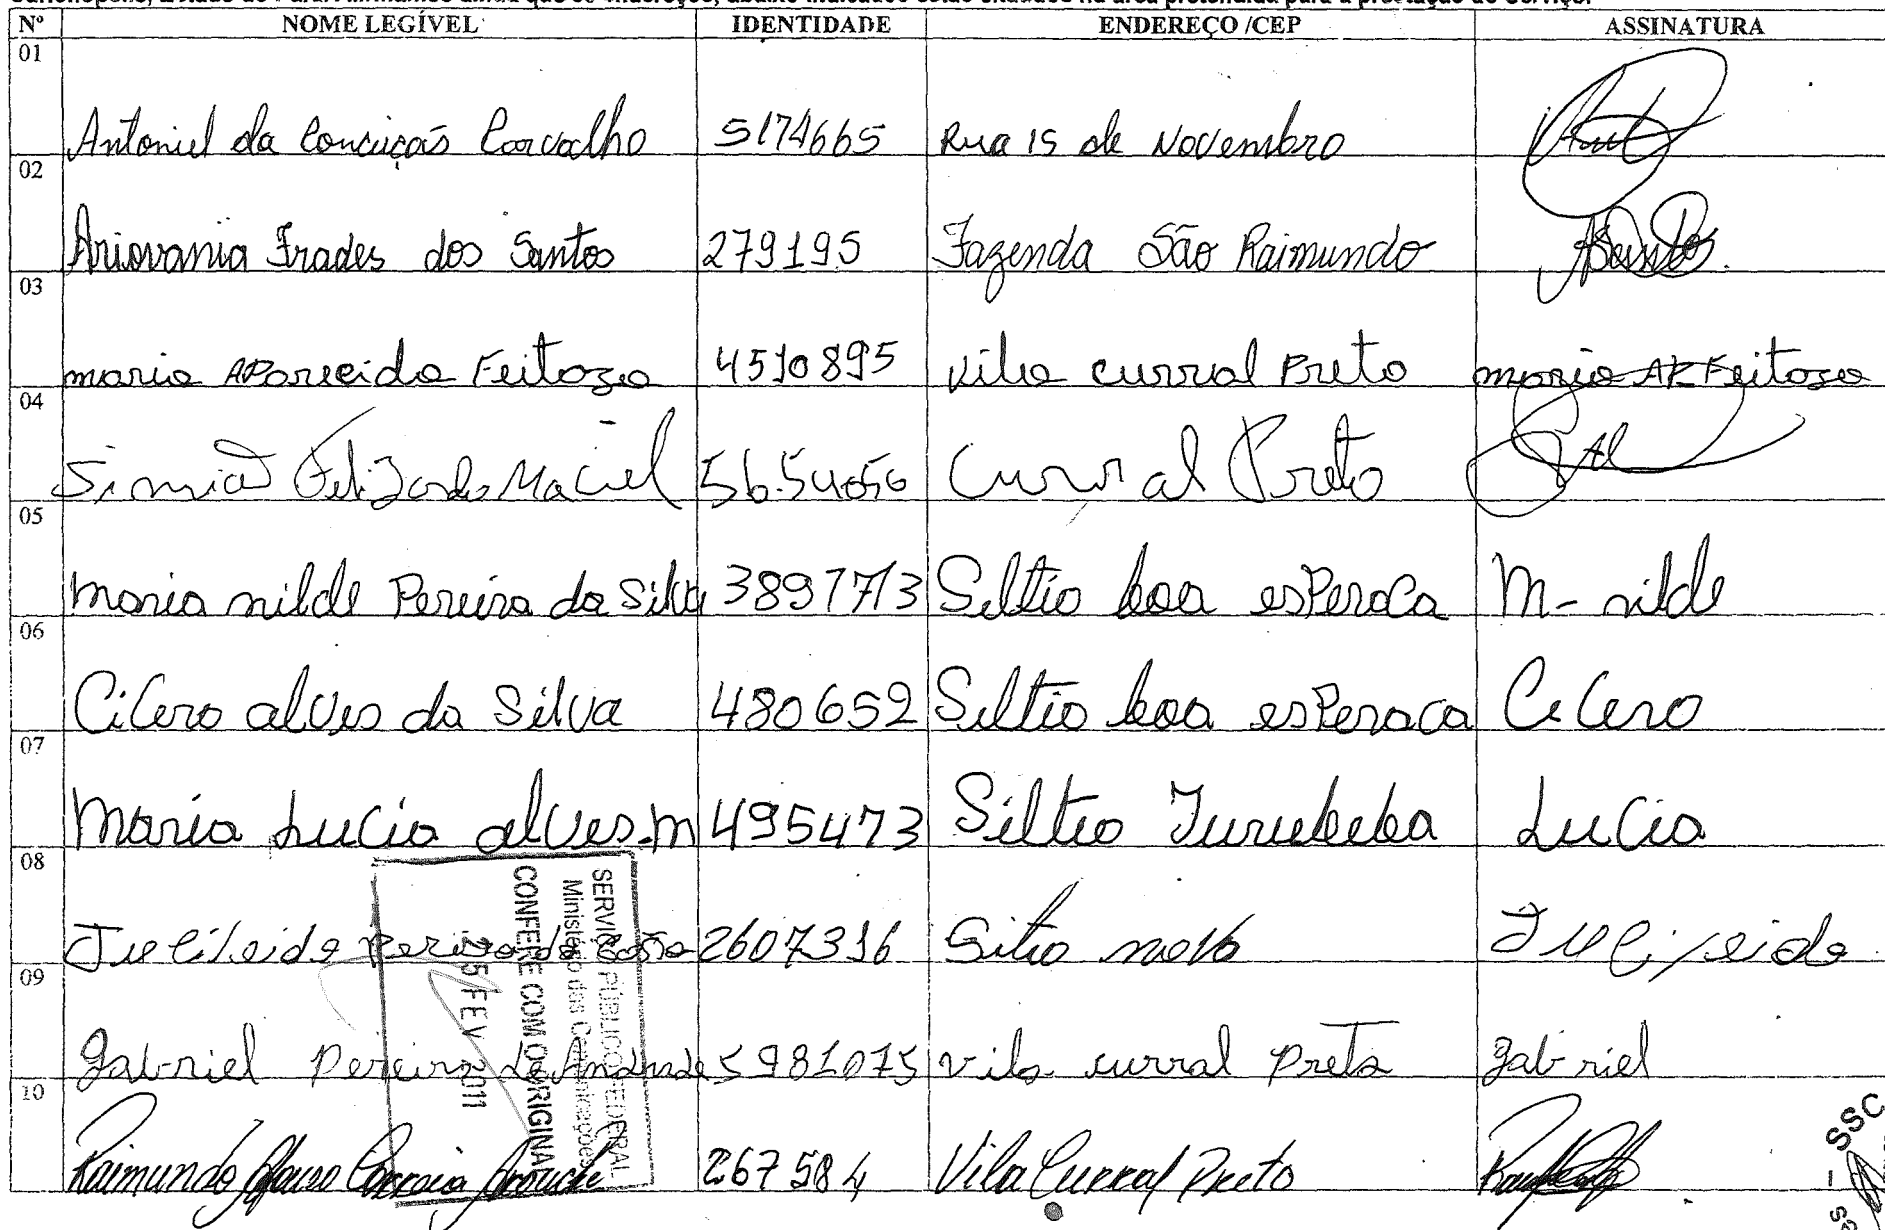 Nº NOME LEGÍVEL IDENTIDADE ENDEREÇO /CEP ASSINATURA
01 Antoniel da Conceiçaõ Carvalho 5174665 Rua 15 de Novembro
02 Ariovania Frades dos Santos 279195 Fazenda São Raimundo
03 maria AParecida Feitoza 4510895 Vila curral Preto maria AP Feitosa
04 Maciel Curral Preto
05 maria nilde Pereira da Silva 3897713 Siltio boa esPeraca M- nilde
06 Cilero alves da Silva 480652 Siltio boa esPeraca Cilero
07 Maria Lucia alves.m 495473 Siltio Jurubeba Lucia
08 2607316 Sitio novo
09 Gabriel Pereira de Andrade 5981075 vila curral Preto Gabriel
10 Raimundo Correia 267584 Vila Curral Preto
SERVIÇO PÚBLICO FEDERAL
Ministério das Comunicações
CONFERE COM O ORIGINAL
25 FEV 2011
SSC